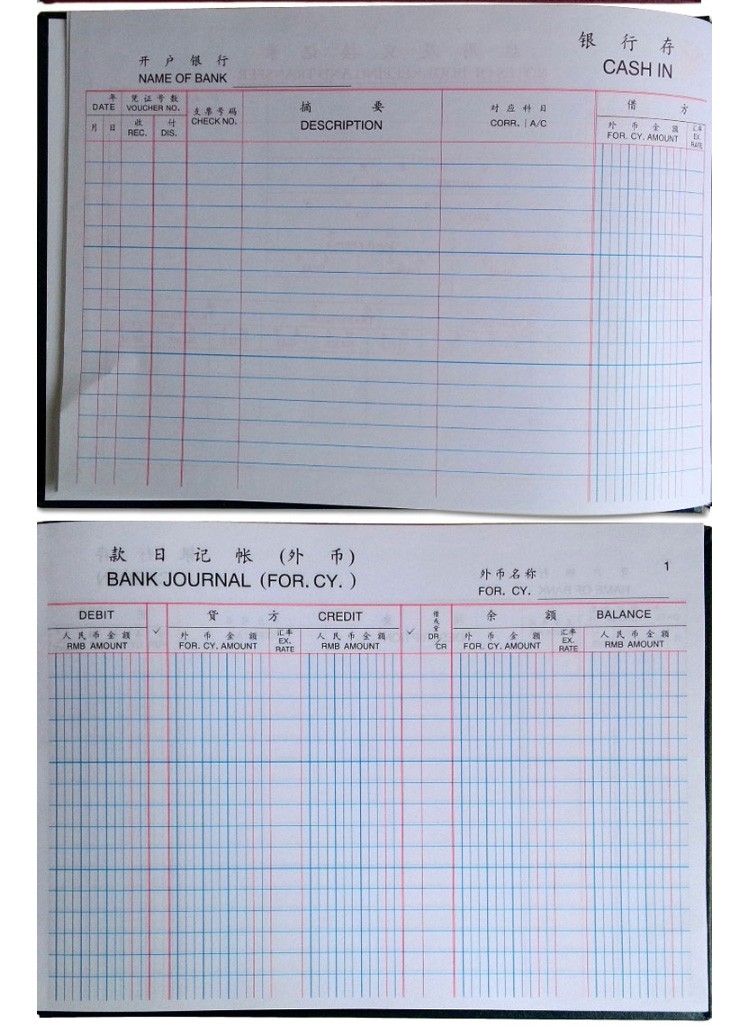 银 行 存
开 户 银 行
CASH IN
NAME OF BANK
年
DATE
凭 证 号 数
VOUCHER NO.
支票号码
CHECK NO.
摘 要
DESCRIPTION
对 应 科 目
CORR. | A/C
借 方
月 日
收
REC.
付
DIS.
外 币 金 额
FOR. CY. AMOUNT
汇率
EX.
RATE
款 日 记 帐 (外 币)
BANK JOURNAL (FOR. CY. )
外 币 名 称
FOR. CY.
1
DEBIT
✓
贷 方 CREDIT
✓
借或贷
DR/CR
余 额 BALANCE
人 民 币 金 额
RMB AMOUNT
外 币 金 额
FOR. CY. AMOUNT
汇率
EX.
RATE
人 民 币 金 额
RMB AMOUNT
外 币 金 额
FOR. CY. AMOUNT
汇率
EX.
RATE
人 民 币 金 额
RMB AMOUNT